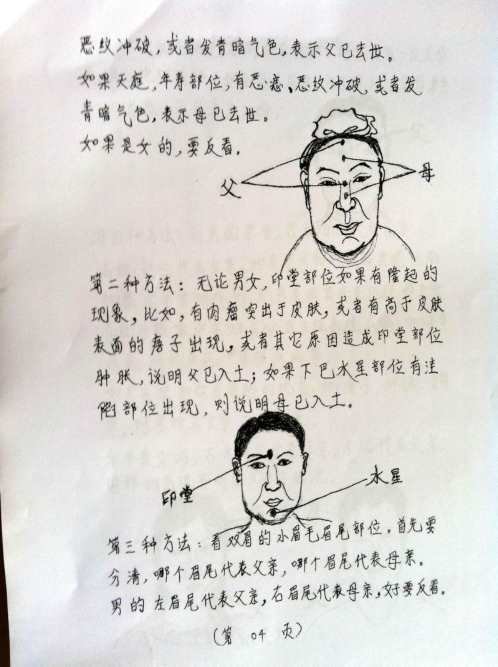 恶纹冲破，或者发青暗气色，表示父已去世。
如果天庭，年寿部位，有恶痣、恶纹冲破，或者发
青暗气色，表示母已去世。
如果是女的，要反看。
父
母
第二种方法：无论男女，印堂部位如果有隆起的
现象，比如，有肉瘤突出于皮肤，或者有高于皮肤
表面的痦子出现，或者其它原因造成印堂部位
肿胀，说明父已入土；如果下巴水星部位有洼
陷部位出现，则说明母已入土。
印堂
水星
第三种方法：看双眉的小眉毛眉尾部位，首先要
分清，哪个眉尾代表父亲，哪个眉尾代表母亲。
男的左眉尾代表父亲，右眉尾代表母亲，女要反看。
（第 04 页）